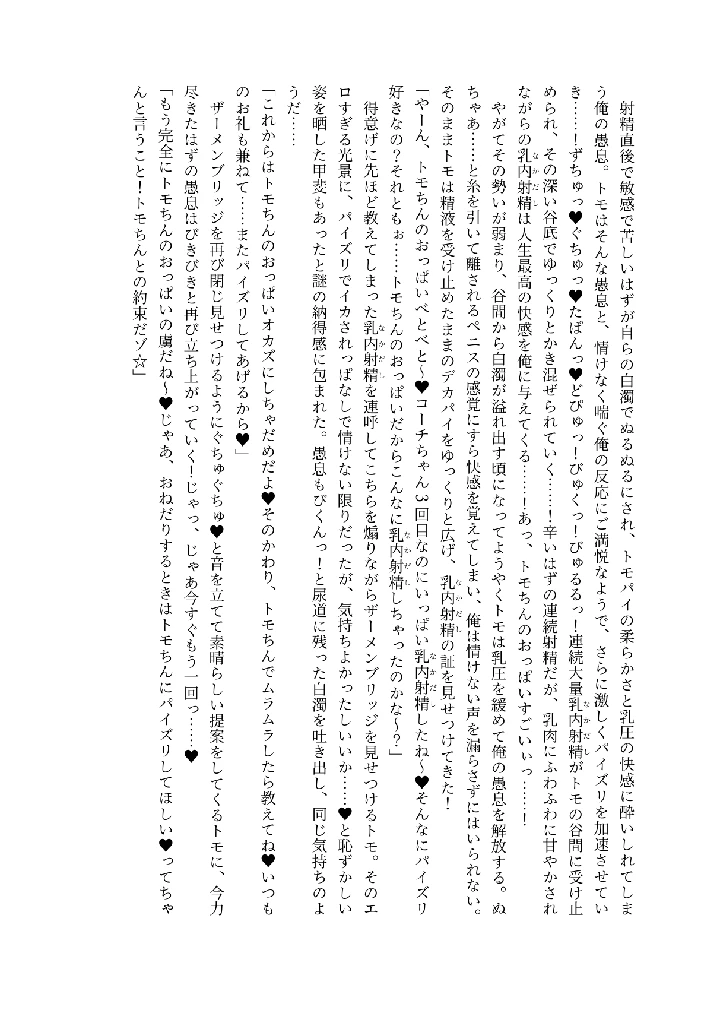 射精直後で敏感で苦しいはずが自らの白濁でぬるぬるにされ、トモパイの柔らかさと乳圧の快感に酔いしれてしま
う俺の愚息。トモはそんな愚息と、情けなく喘ぐ俺の反応にご満悦なようで、さらに激しくパイズリを加速させてい
き……！ずちゅっ♥ぐちゅっ♥たぱんっ♥どびゅっ！びゅくっ！びゅるるっ！連続大量乳内射精がトモの谷間に受け止
められ、その深い谷底でゆっくりとかき混ぜられていく……！辛いはずの連続射精だが、乳肉にふわふわに甘やかされ
ながらの乳内射精は人生最高の快感を俺に与えてくる……！あっ、トモちんのおっぱいすごいぃっ……！
やがてその勢いが弱まり、谷間から白濁が溢れ出す頃になってようやくトモは乳圧を緩めて俺の愚息を解放する。ぬ
ちゃあ……と糸を引いて離されるペニスの感覚にすら快感を覚えてしまい、俺は情けない声を漏らさずにはいられない。
そのままトモは精液を受け止めたままのデカパイをゆっくりと広げ、乳内射精の証を見せつけてきた！
「やーん、トモちんのおっぱいべとべと～♥コーチちゃん3回目なのにいっぱい乳内射精したね～♥そんなにパイズリ
好きなの？それともぉ……トモちんのおっぱいだからこんなに乳内射精しちゃったのかな～？」
得意げに先ほど教えてしまった乳内射精を連呼してこちらを煽りながらザーメンブリッジを見せつけるトモ。そのエ
ロすぎる光景に、パイズリでイカされっぱなしで情けない限りだったが、気持ちよかったしいいか……♥と恥ずかしい
姿を晒した甲斐もあったと謎の納得感に包まれた。愚息もびくんっ！と尿道に残った白濁を吐き出し、同じ気持ちのよ
うだ……
「これからはトモちんのおっぱいオカズにしちゃだめだよ♥そのかわり、トモちんでムラムラしたら教えてね♥いつも
のお礼も兼ねて……またパイズリしてあげるから♥」
ザーメンブリッジを再び閉じ見せつけるようにぐちゅぐちゅ♥と音を立てて素晴らしい提案をしてくるトモに、今力
尽きたはずの愚息はぴきぴきと再び立ち上がっていく！じゃっ、じゃあ今すぐもう一回っ……♥
「もう完全にトモちんのおっぱいの虜だね～♥じゃあ、おねだりするときはトモちんにパイズリしてほしい♥ってちゃ
んと言うこと！トモちんとの約束だゾ☆」